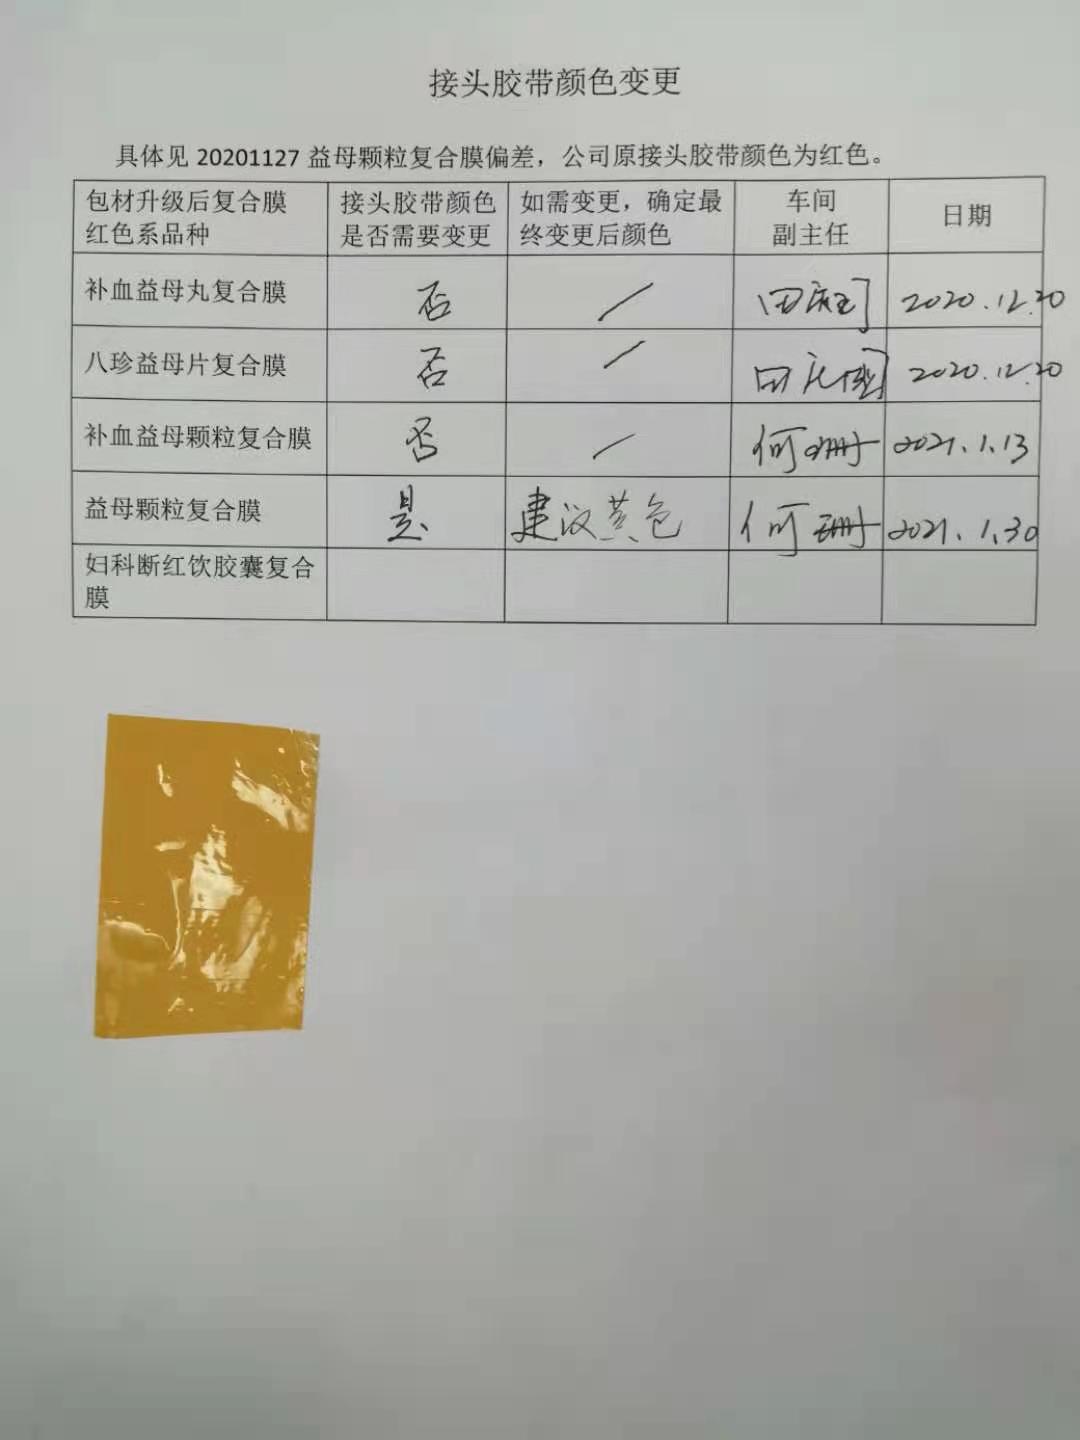 接头胶带颜色变更
具体见 20201127 益母颗粒复合膜偏差，公司原接头胶带颜色为红色。
包材升级后复合膜 接头胶带颜色 如需变更，确定最 车间 日期
红色系品种 是否需要变更 终变更后颜色 副主任
补血益母丸复合膜 否 / 2020.12.20
八珍益母片复合膜 否 / 2020.12.20
补血益母颗粒复合膜 否 / 何珊 2021.1.13
益母颗粒复合膜 是 建议黄色 何珊 2021.1.30
妇科断红饮胶囊复合
膜